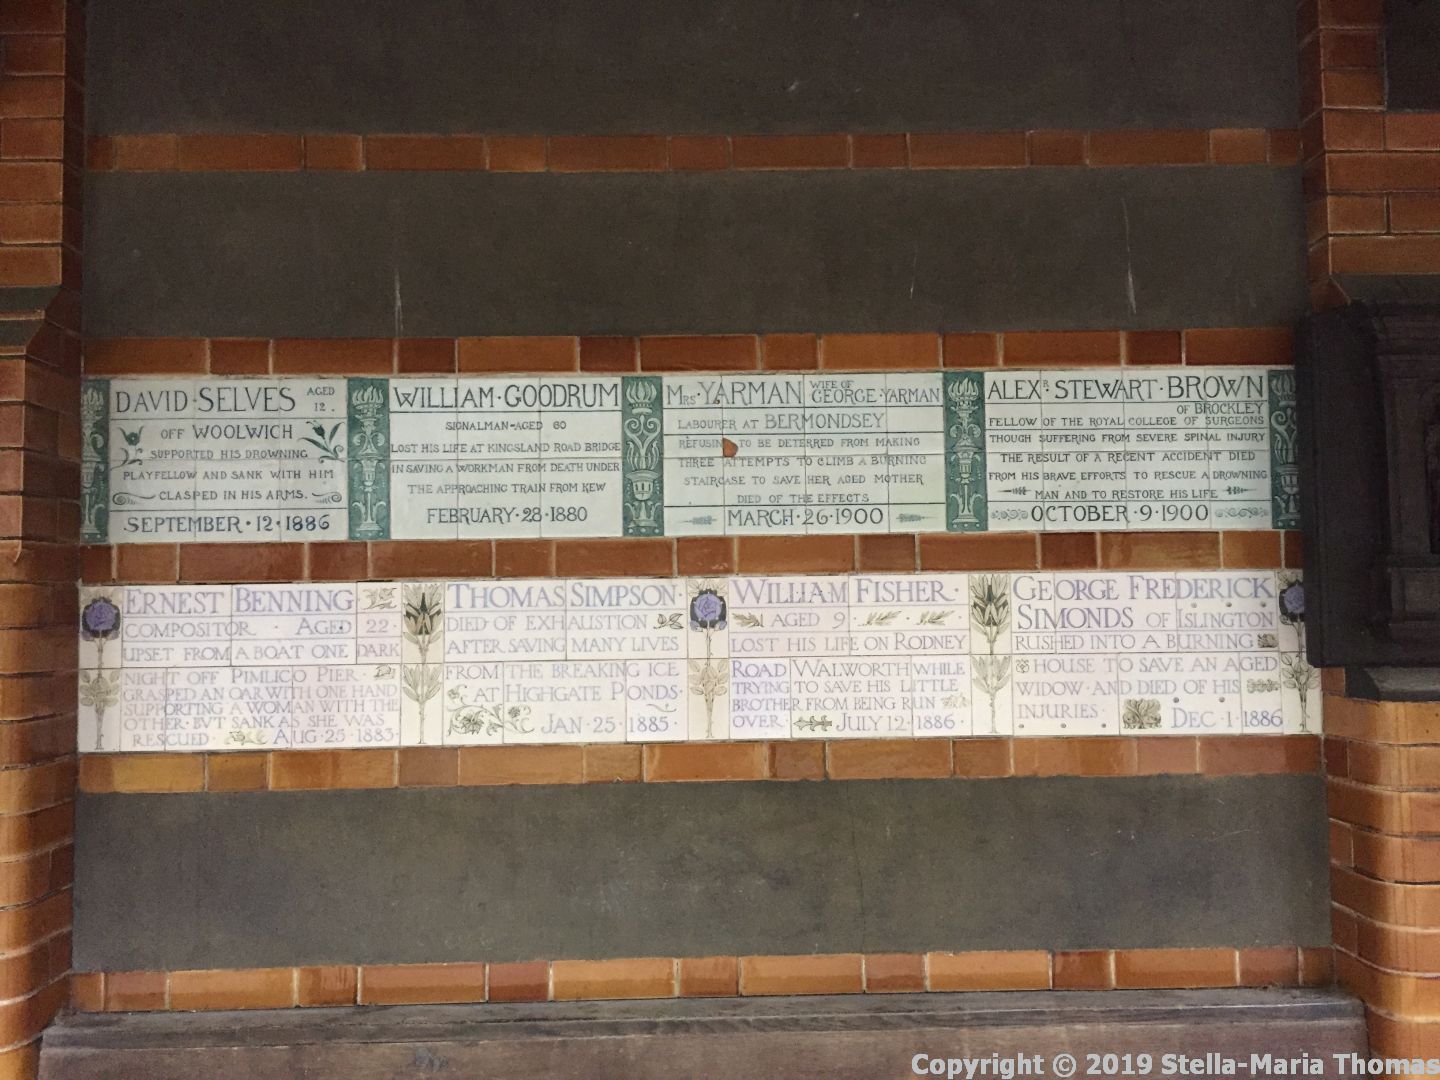 DAVID · SELVES AGED 12.
OFF WOOLWICH
SUPPORTED HIS DROWNING
PLAYFELLOW AND SANK WITH HIM
CLASPED IN HIS ARMS.
SEPTEMBER · 12 · 1886
WILLIAM · GOODRUM
SIGNALMAN - AGED 60
LOST HIS LIFE AT KINGSLAND ROAD BRIDGE
IN SAVING A WORKMAN FROM DEATH UNDER
THE APPROACHING TRAIN FROM KEW
FEBRUARY · 28 · 1880
MRS · YARMAN WIFE OF GEORGE · YARMAN
LABOURER AT BERMONDSEY
REFUSING TO BE DETERRED FROM MAKING
THREE ATTEMPTS TO CLIMB A BURNING
STAIRCASE TO SAVE HER AGED MOTHER
DIED OF THE EFFECTS
MARCH · 26 · 1900
ALEXR · STEWART · BROWN
OF BROCKLEY
FELLOW OF THE ROYAL COLLEGE OF SURGEONS
THOUGH SUFFERING FROM SEVERE SPINAL INJURY
THE RESULT OF A RECENT ACCIDENT DIED
FROM HIS BRAVE EFFORTS TO RESCUE A DROWNING
MAN AND TO RESTORE HIS LIFE
OCTOBER · 9 · 1900
ERNEST BENNING ·
COMPOSITOR · AGED 22 ·
UPSET FROM A BOAT ONE DARK
NIGHT OFF PIMLICO PIER ·
GRASPED AN OAR WITH ONE HAND
SUPPORTING A WOMAN WITH THE
OTHER · BVT SANK AS SHE WAS
RESCUED · AUG · 25 · 1883 ·
THOMAS SIMPSON ·
DIED OF EXHAUSTION
AFTER SAVING MANY LIVES
FROM THE BREAKING ICE
AT HIGHGATE PONDS ·
JAN · 25 · 1885 ·
WILLIAM FISHER ·
AGED 9 ·
LOST HIS LIFE ON RODNEY
ROAD WALWORTH WHILE
TRYING TO SAVE HIS LITTLE
BROTHER FROM BEING RUN
OVER · JULY 12 · 1886 ·
GEORGE FREDERICK
SIMONDS OF ISLINGTON
RUSHED INTO A BURNING
HOUSE TO SAVE AN AGED
WIDOW · AND DIED OF HIS
INJURIES · DEC · 1 · 1886
Copyright © 2019 Stella-Maria Thomas